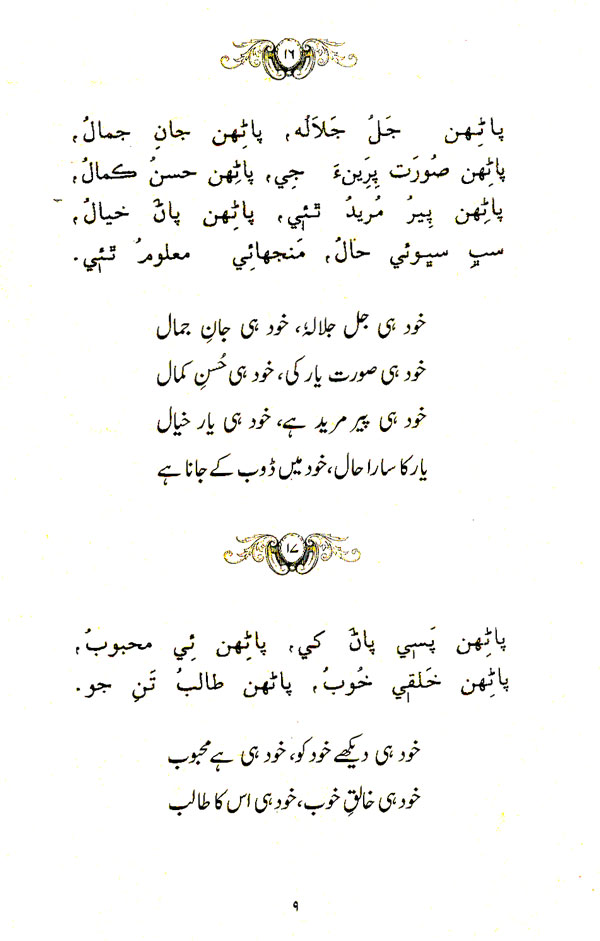 ۱۶
پاڻِهِن جَلُ جَلَالُہ، پاڻِهن جانِ جمالُ،
پاڻِهن صُورَت پِرِينءَ جِي، پاڻِهن حسنُ ڪمالُ،
پاڻِهن پِيرُ مُريدُ ٿئٖي، پاڻِهن پاڻَ خيالُ،
سڀ سڀوئي حالُ، مَنجهائِي معلومُ ٿئٖي.
خود ہی جل جلالہٗ، خود ہی جانِ جمال
خود ہی صورت یار کی، خود ہی حُسنِ کمال
خود ہی پیر مرید ہے، خود ہی یار خیال
یار کا سارا حال، خود میں ڈوب کے جانا ہے
۱۷
پاڻِهن پَسٖي پاڻَ کي، پاڻِهن ئِي محبوبُ،
پاڻِهن خَلقٖي خُوبُ، پاڻهن طالبُ تَنِ جو.
خود ہی دیکھے خود کو، خود ہی ہے محبوب
خود ہی خالقِ خوب، خود ہی اس کا طالب
۹